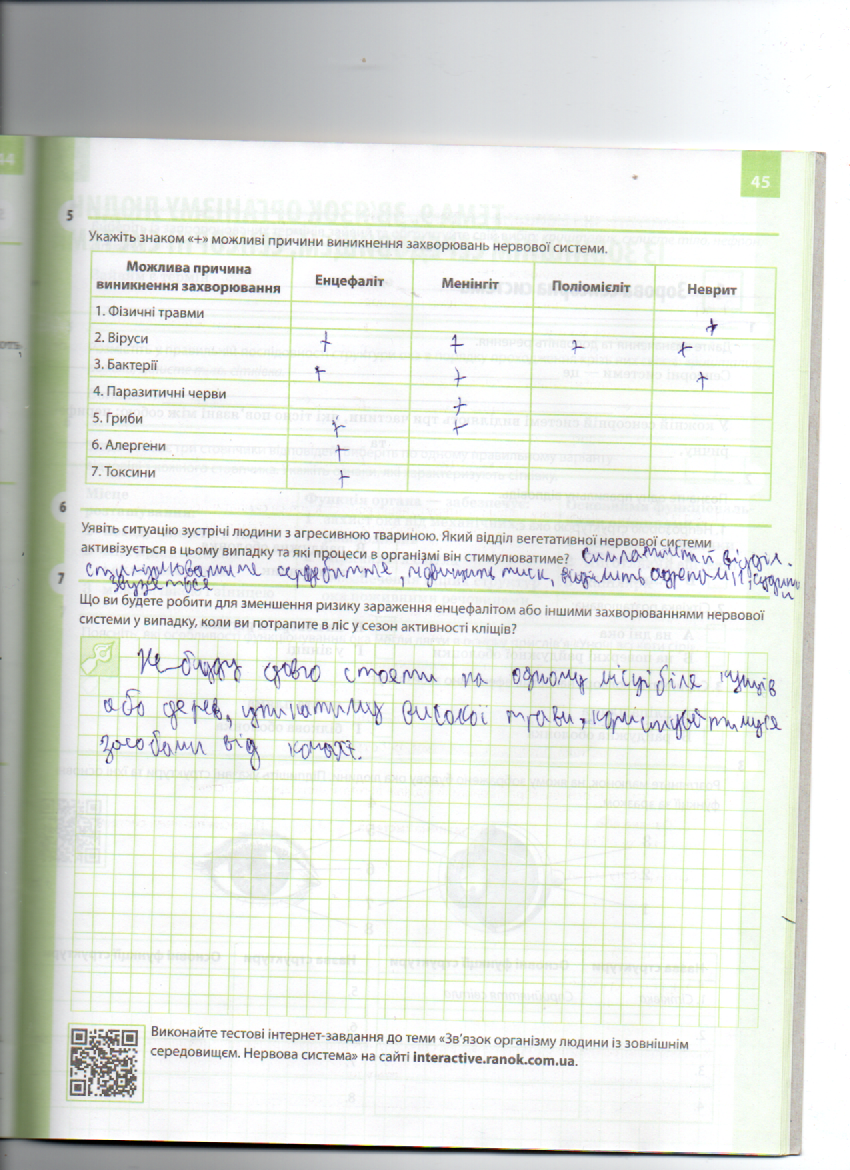 44
45
5
Укажіть знаком «+» можливі причини виникнення захворювань нервової системи.
Можлива причина виникнення захворювання Енцефаліт Менінгіт Поліомієліт Неврит
1. Фізичні травми +
2. Віруси + + + +
3. Бактерії + + +
4. Паразитичні черви +
5. Гриби + +
6. Алергени +
7. Токсини +
6
Уявіть ситуацію зустрічі людини з агресивною твариною. Який відділ вегетативної нервової системи
активізується в цьому випадку та які процеси в організмі він стимулюватиме? Симпатичний відділ.
стимулюватиме серцебиття, підвищить тиск, виділить адреналін,
звузяться
7
Що ви будете робити для зменшення ризику зараження енцефалітом або іншими захворюваннями нервової
системи у випадку, коли ви потрапите в ліс у сезон активності кліщів?
Не буду довго стояти на одному місці біля кущів
або дерев, уникатиму високої трави, користуватимуся
засобами від комах.
Виконайте тестові інтернет-завдання до теми «Зв'язок організму людини із зовнішнім
середовищем. Нервова система» на сайті interactive.ranok.com.ua.